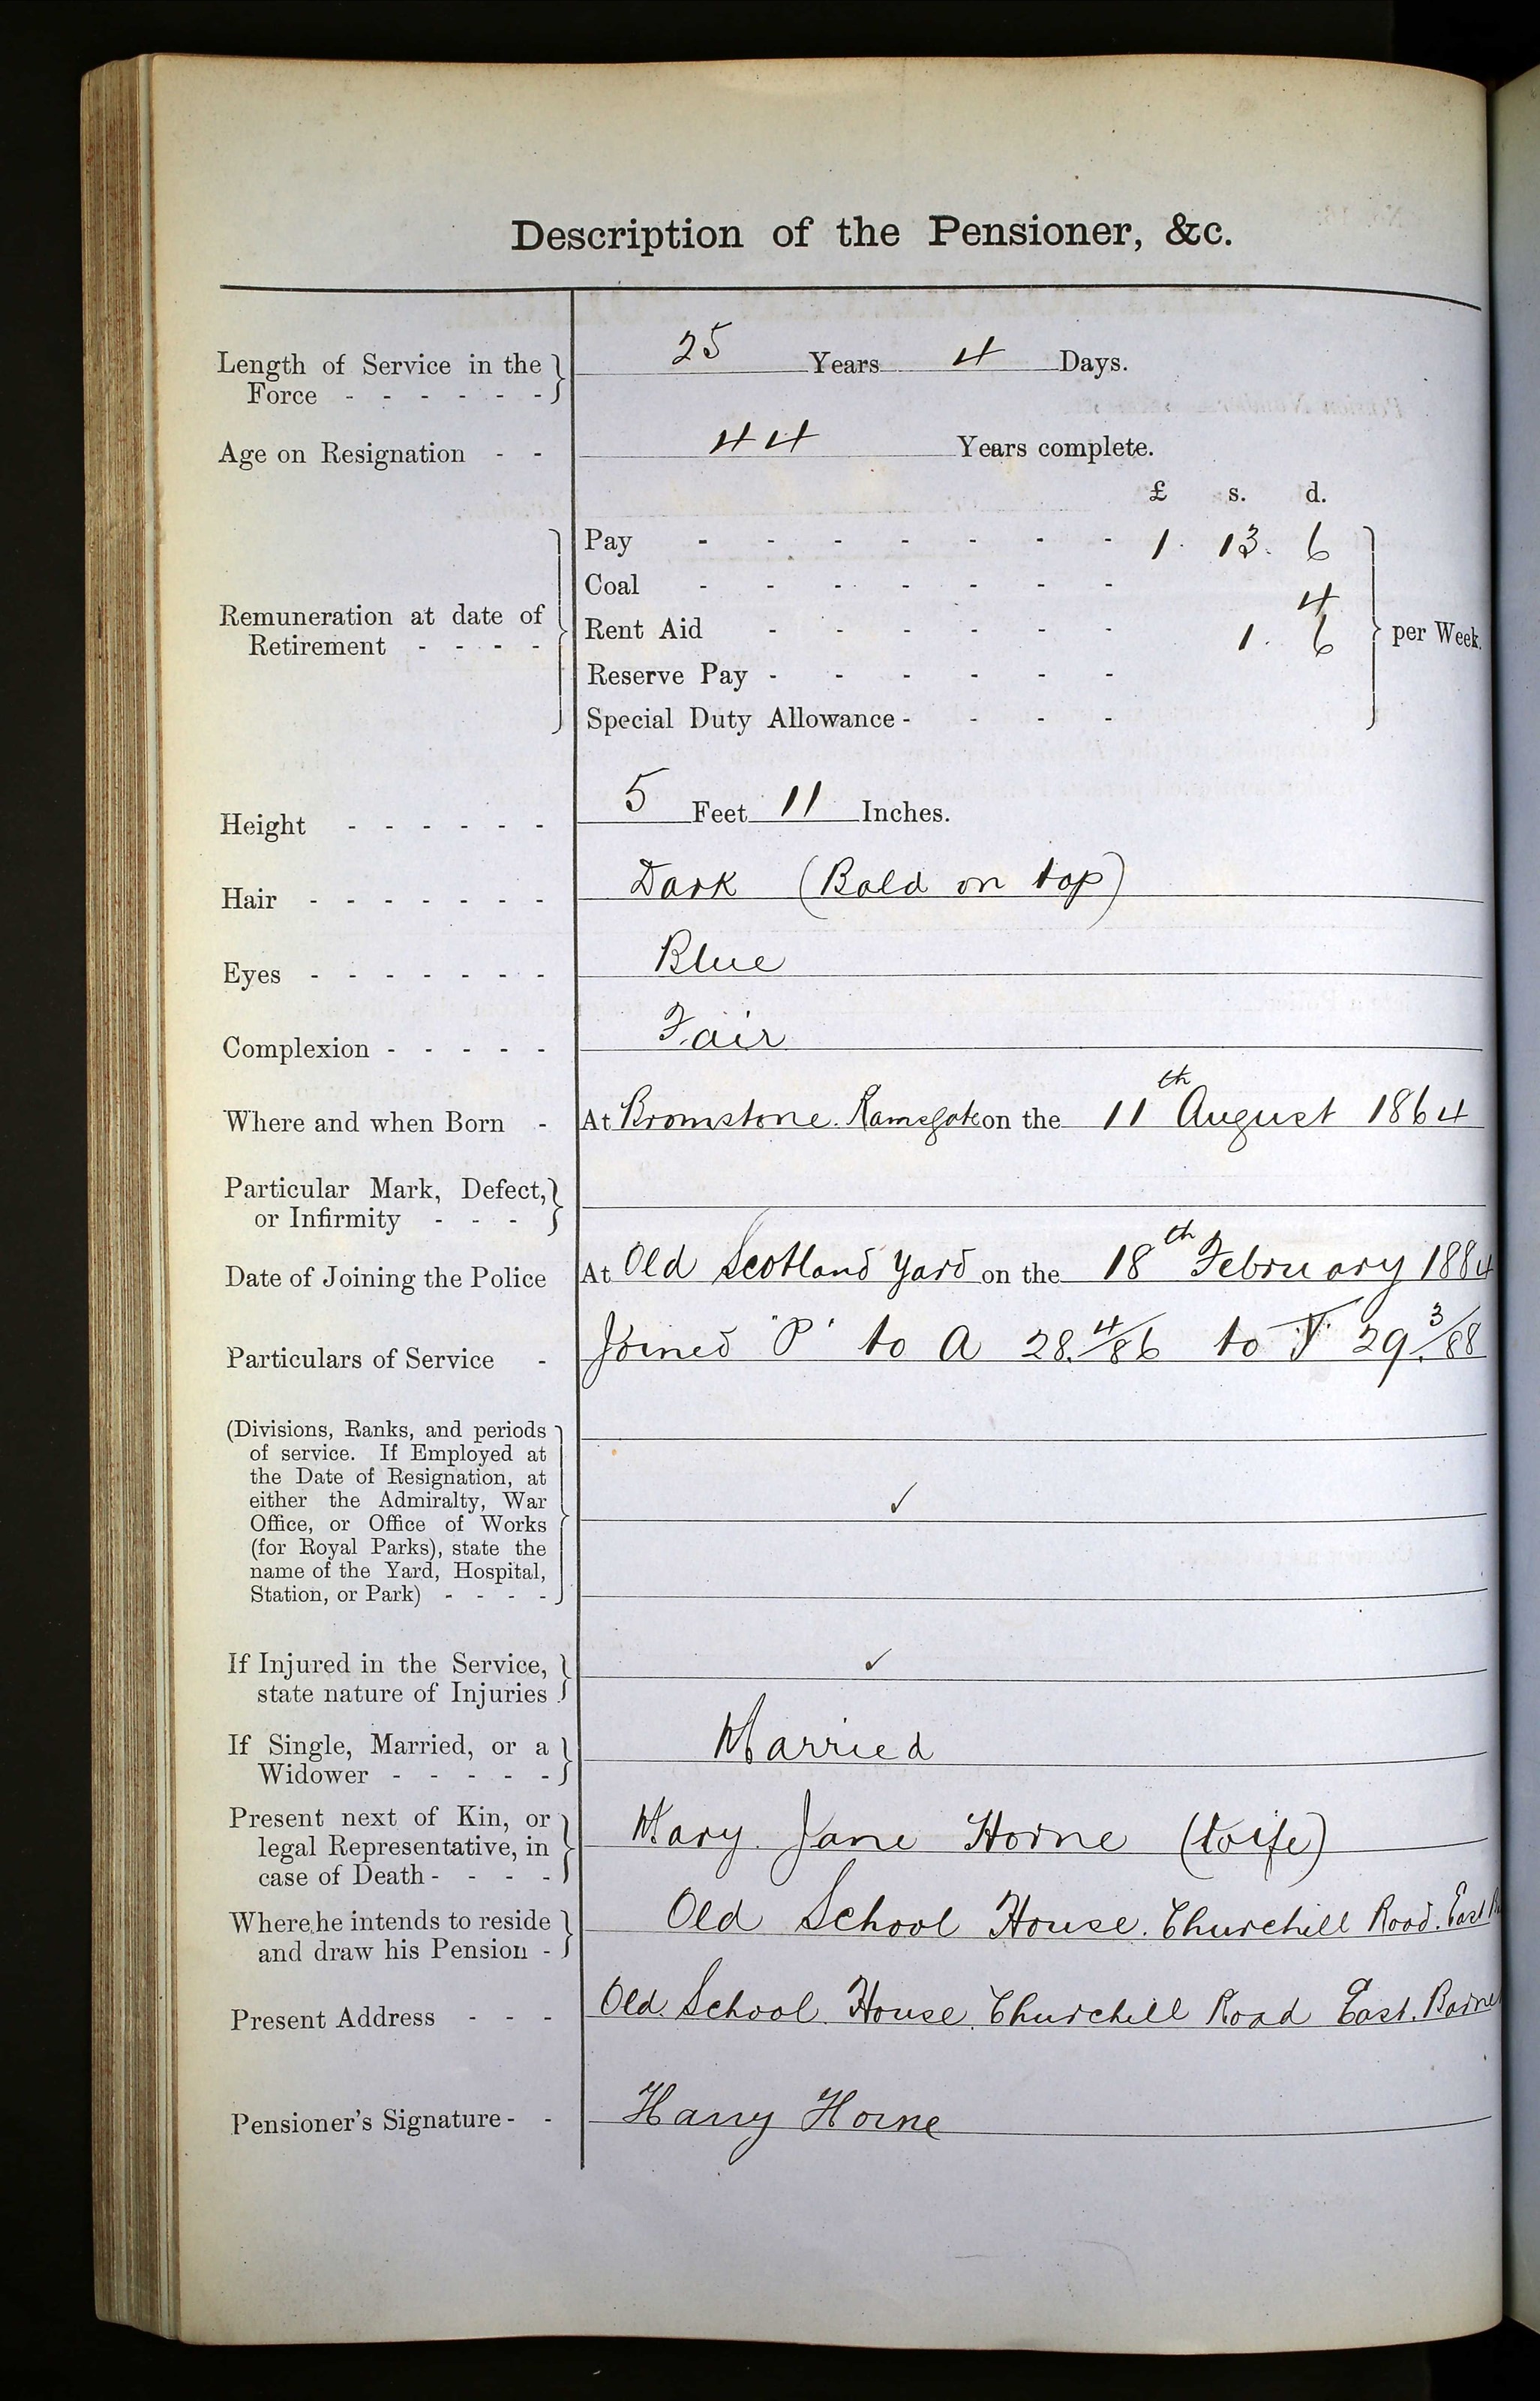 Description of the Pensioner, &c.
Length of Service in the Force - - - - - - 25 Years 4 Days.
Age on Resignation - - 44 Years complete.
£ s. d.
Remuneration at date of Retirement - - - -
Pay - - - - - - - 1. 13. 6
Coal - - - - - - - 4
Rent Aid - - - - - - 1. 6
per Week.
Reserve Pay - - - - - -
Special Duty Allowance - - - -
Height - - - - - - 5 Feet 11 Inches.
Hair - - - - - - - Dark (Bald on top)
Eyes - - - - - - - Blue
Complexion - - - - - Fair
Where and when Born - At Bromstone. Ramsgate on the 11th August 1864
Particular Mark, Defect, or Infirmity - - -
Date of Joining the Police At Old Scotland Yard on the 18th February 1884
Particulars of Service - Joined "P" to A 28.4/86 to 29.3/88
(Divisions, Ranks, and periods
of service. If Employed at
the Date of Resignation, at
either the Admiralty, War
Office, or Office of Works
(for Royal Parks), state the
name of the Yard, Hospital,
Station, or Park) - - - -
If Injured in the Service,
state nature of Injuries
If Single, Married, or a Widower - - - - - Married
Present next of Kin, or
legal Representative, in
case of Death - - - - Mary Jane Horne (Wife)
Where he intends to reside
and draw his Pension - Old School House. Churchill Road. East
Present Address - - - Old School House Churchill Road East. Barnet
Pensioner's Signature - - Harry Horne